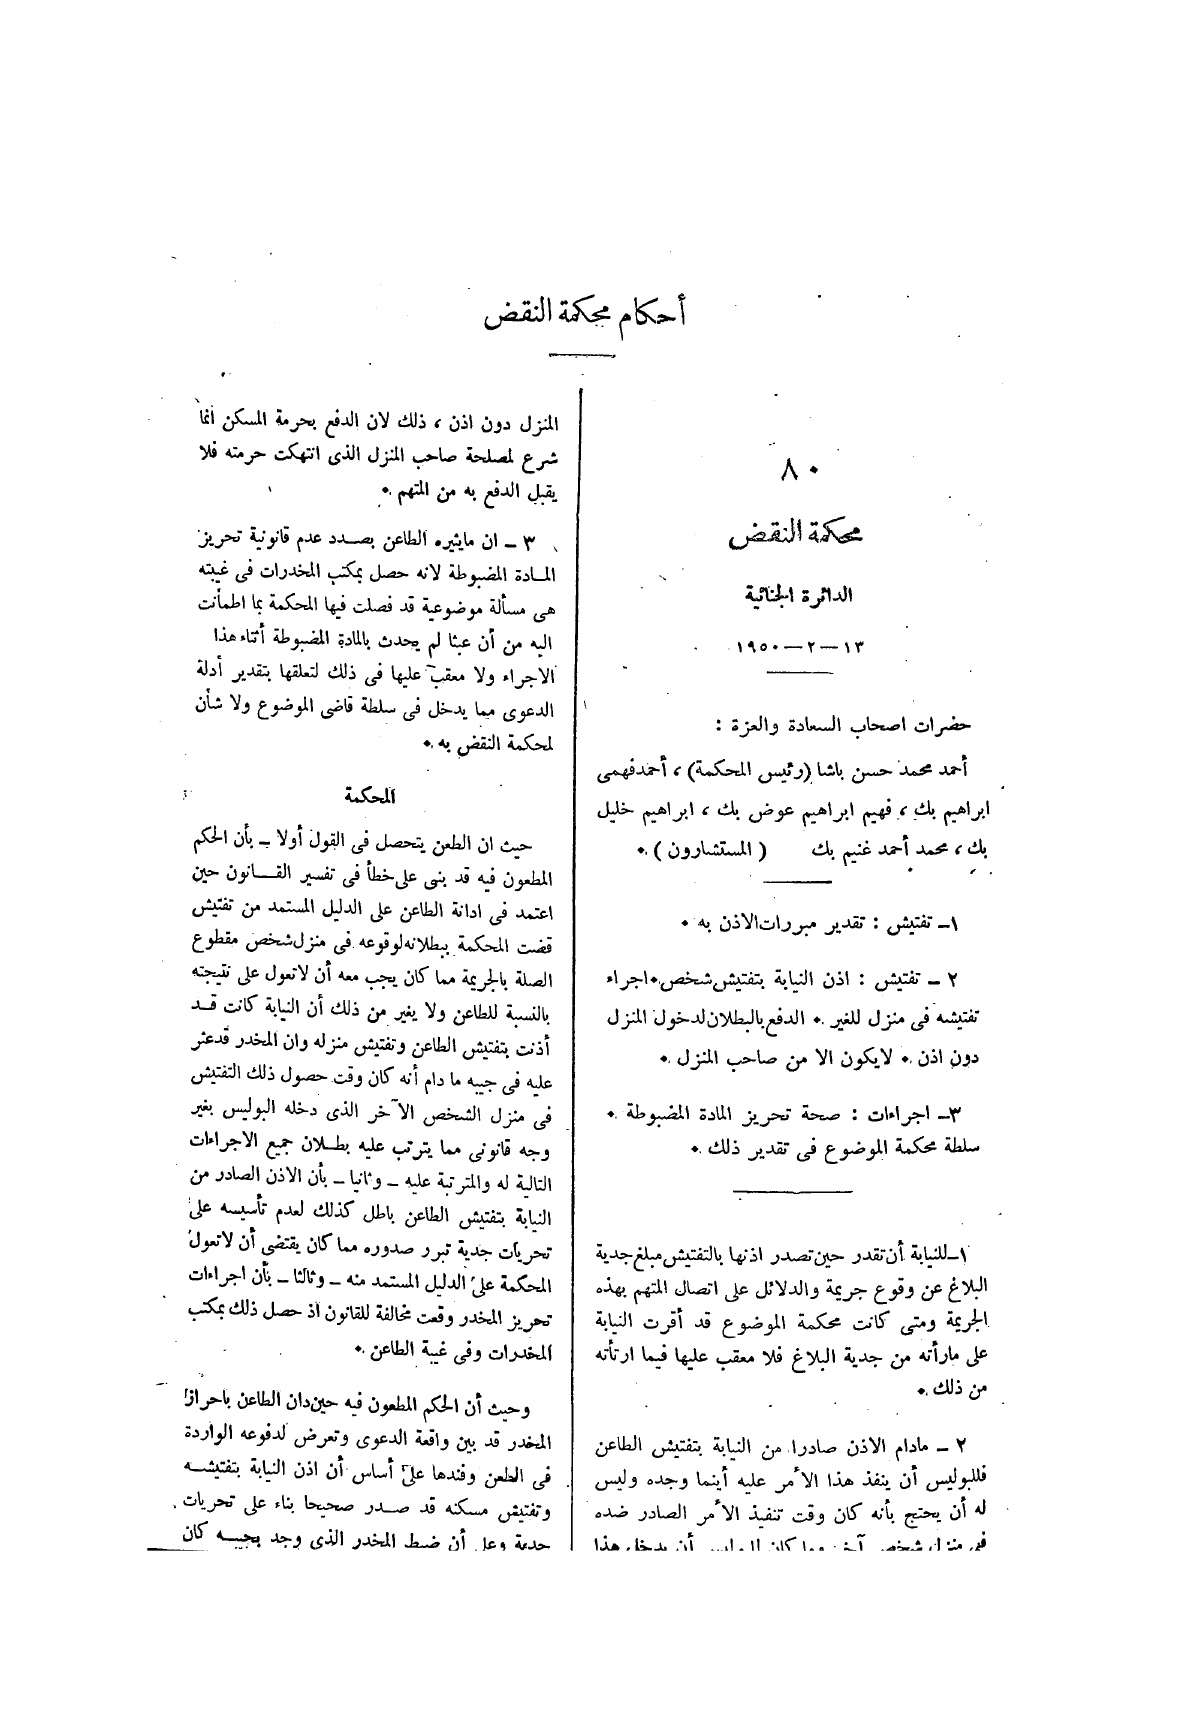 أحكام محكمة النقض
٨٠
محكمة النقض
الدائرة الجنائية
١٣ — ٢ — ١٩٥٠
حضرات اصحاب السعادة والعزة :
أحمد محمد حسن باشا (رئيس المحكمة) ، أحمد فهمى
ابراهيم بك ، فهيم ابراهيم عوض بك ، ابراهيم خليل
بك ، محمد أحمد غنيم بك ( المستشارون ) .
١ – تفتيش : تقدير مبررات الاذن به .
٢ – تفتيش : اذن النيابة بتفتيش شخص . اجراء
تفتيشه فى منزل للغير . الدفع بالبطلان لدخول المنزل
دون اذن . لايكون الا من صاحب المنزل .
٣ – اجراءات : صحة تحريز المادة المضبوطة .
سلطة محكمة الموضوع فى تقدير ذلك .
١ – للنيابة أن تقدر حين تصدر اذنها بالتفتيش مبلغ جدية
البلاغ عن وقوع جريمة والدلائل على اتصال المتهم بهذه
الجريمة ومتى كانت محكمة الموضوع قد أقرت النيابة
على مارأته من جدية البلاغ فلا معقب عليها فيما ارتأته
من ذلك .
٢ – مادام الاذن صادرا من النيابة بتفتيش الطاعن
فللبوليس أن ينفذ هذا الأمر عليه أينما وجده وليس
له أن يحتج بأنه كان وقت تنفيذ الأمر الصادر ضده
فى منزل شخص آخر وما كان للبوليس أن يدخل هذا
المنزل دون اذن ، ذلك لان الدفع بحرمة المسكن انما
شرع لمصلحة صاحب المنزل الذى انتهكت حرمته فلا
يقبل الدفع به من المتهم .
٣ – ان مايثيره الطاعن بصدد عدم قانونية تحريز
المادة المضبوطة لانه حصل بمكتب المخدرات فى غيبته
هى مسألة موضوعية قد فصلت فيها المحكمة بما اطمأنت
اليه من أن عبثا لم يحدث بالمادة المضبوطة أثناء هذا
الاجراء ولا معقب عليها فى ذلك لتعلقها بتقدير أدلة
الدعوى مما يدخل فى سلطة قاضى الموضوع ولا شأن
لمحكمة النقض به .
المحكمة
حيث ان الطعن يتحصل فى القول أولا – بأن الحكم
المطعون فيه قد بنى على خطأ فى تفسير القانون حين
اعتمد فى ادانة الطاعن على الدليل المستمد من تفتيش
قضت المحكمة ببطلانه لوقوعه فى منزل شخص مقطوع
الصلة بالجريمة مما كان يجب معه أن لاتعول على نتيجته
بالنسبة للطاعن ولا يغير من ذلك أن النيابة كانت قد
أذنت بتفتيش الطاعن وتفتيش منزله وان المخدر قد عثر
عليه فى جيبه ما دام أنه كان وقت حصول ذلك التفتيش
فى منزل الشخص الآخر الذى دخله البوليس بغير
وجه قانونى مما يترتب عليه بطلان جميع الاجراءات
التالية له والمترتبة عليه – وثانيا – بأن الاذن الصادر من
النيابة بتفتيش الطاعن باطل كذلك لعدم تأسيسه على
تحريات جدية تبرر صدوره مما كان يقتضى أن لاتعول
المحكمة على الدليل المستمد منه – وثالثا – بأن اجراءات
تحريز المخدر وقعت مخالفة للقانون اذ حصل ذلك بمكتب
المخدرات وفى غيبة الطاعن .
وحيث أن الحكم المطعون فيه حين دان الطاعن باحراز
المخدر قد بين واقعة الدعوى وتعرض لدفوعه الواردة
فى الطعن وفندها على أساس أن اذن النيابة بتفتيشه
وتفتيش مسكنه قد صدر صحيحا بناء على تحريات
جدية وعلى أن ضبط المخدر الذى وجد بجيبه كان